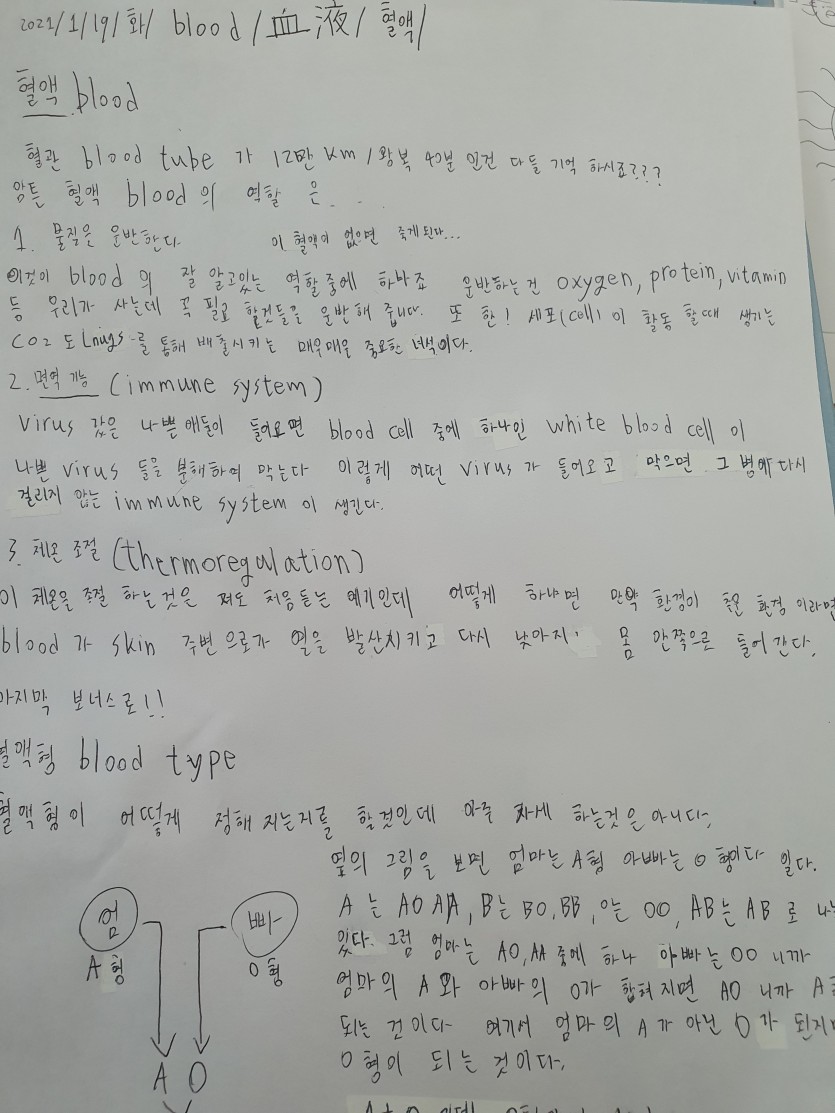 2021/1/19/화/ blood/血液/혈액/
혈액 blood
혈관 blood tube 가 12만 km/왕복 40분 인건 다들 기억 하시죠???
암튼 혈액 blood의 역할 은...
1. 물질을 운반한다. 이 혈액이 없으면 죽게된다...
이것이 blood의 잘 알고있는 역할중에 하나죠 운반하는건 oxygen, protein, vitamin
등 우리가 사는데 꼭 필요 할것들을 운반해 줍니다. 또 한! 세포(cell)이 활동 할때 생기는
CO2 도 Lnugs를 통해 배출시키는 매우매우 중요한 녀석이다.
2. 면역 기능 (immune system)
Virus 같은 나쁜애들이 들어오면 blood cell 중에 하나인 white blood cell 이
나쁜 virus 들을 분해하여 막는다 이렇게 어떤 virus가 들어오고 막으면 그 병에 다시
걸리지 않는 immune system 이 생긴다.
3. 체온 조절 (thermoregulation)
이 체온을 조절 하는것은 저도 처음듣는 얘기인데 어떻게 하냐면 만약 환경이 환경 이라면
blood 가 skin 주변으로가 열을 발산시키고 다시 낮아지 몸 안쪽으로 들어간다.
마지막 보너스로!!
혈액형 blood type
혈액형이 어떻게 정해 지는지를 할것인데 아주 자세 하는것은 아니다.
옆의 그림을 보면 엄마는 A형 아빠는 O 형이다 일다.
A 는 AO AA, B는 BO, BB, O는 OO, AB는 AB 로 나
있다. 그럼 엄마는 AO, AA 중에 하나 아빠는 OO 니까
엄마의 A 와 아빠의 O가 합쳐 지면 AO 니까 A
되는 것이다 여기서 엄마의 A가 아닌 O가 된지
O형이 되는 것이다.
엄 빠
A형 O형
A O